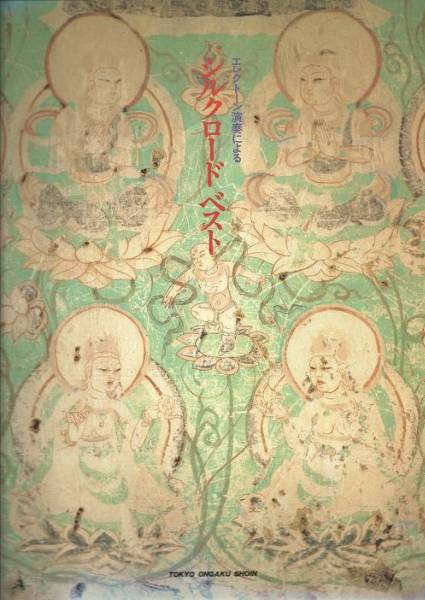 エレクトーン演奏による
シルクロード ベスト
TOKYO ONGAKU SHOIN